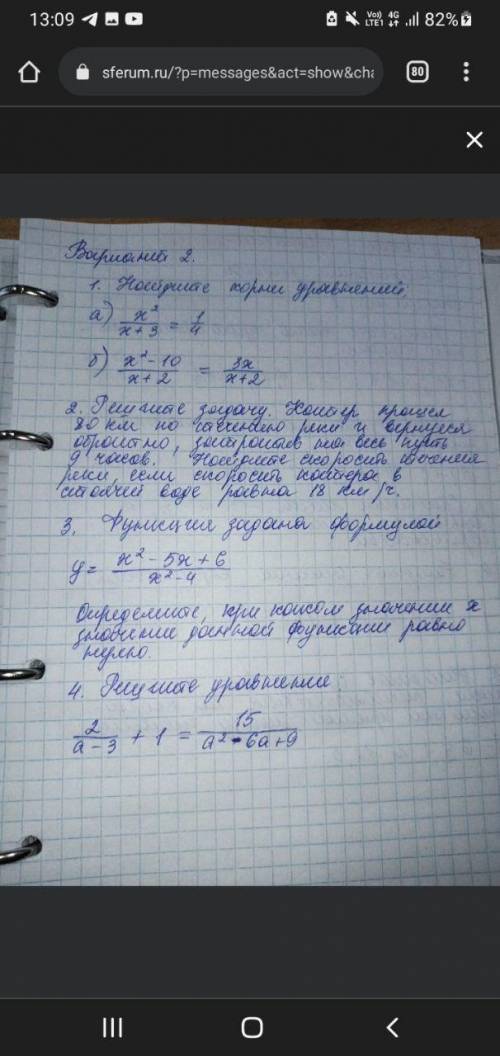 13:09
Vo)) LTE1 4G 82%
sferum.ru/?p=messages&act=show&cha
80
Вариант 2.
1. Найдите корни уравнений
а) x²/(x+3) = 1/4
б) (x²-10)/(x+2) = 3x/(x+2)
2. Решите задачу. Катер прошел
80 км по течению реки и вернулся
обратно, затратив на весь путь
9 часов. Найдите скорость течения
реки, если скорость катера в
стоячей воде равна 18 км/ч.
3. Функция задана формулой
y = (x²-5x+6)/(x²-4)
Определите, при каком значении x
значение данной функции равно
нулю.
4. Решите уравнение:
2/(a-3) + 1 = 15/(a²-6a+9)